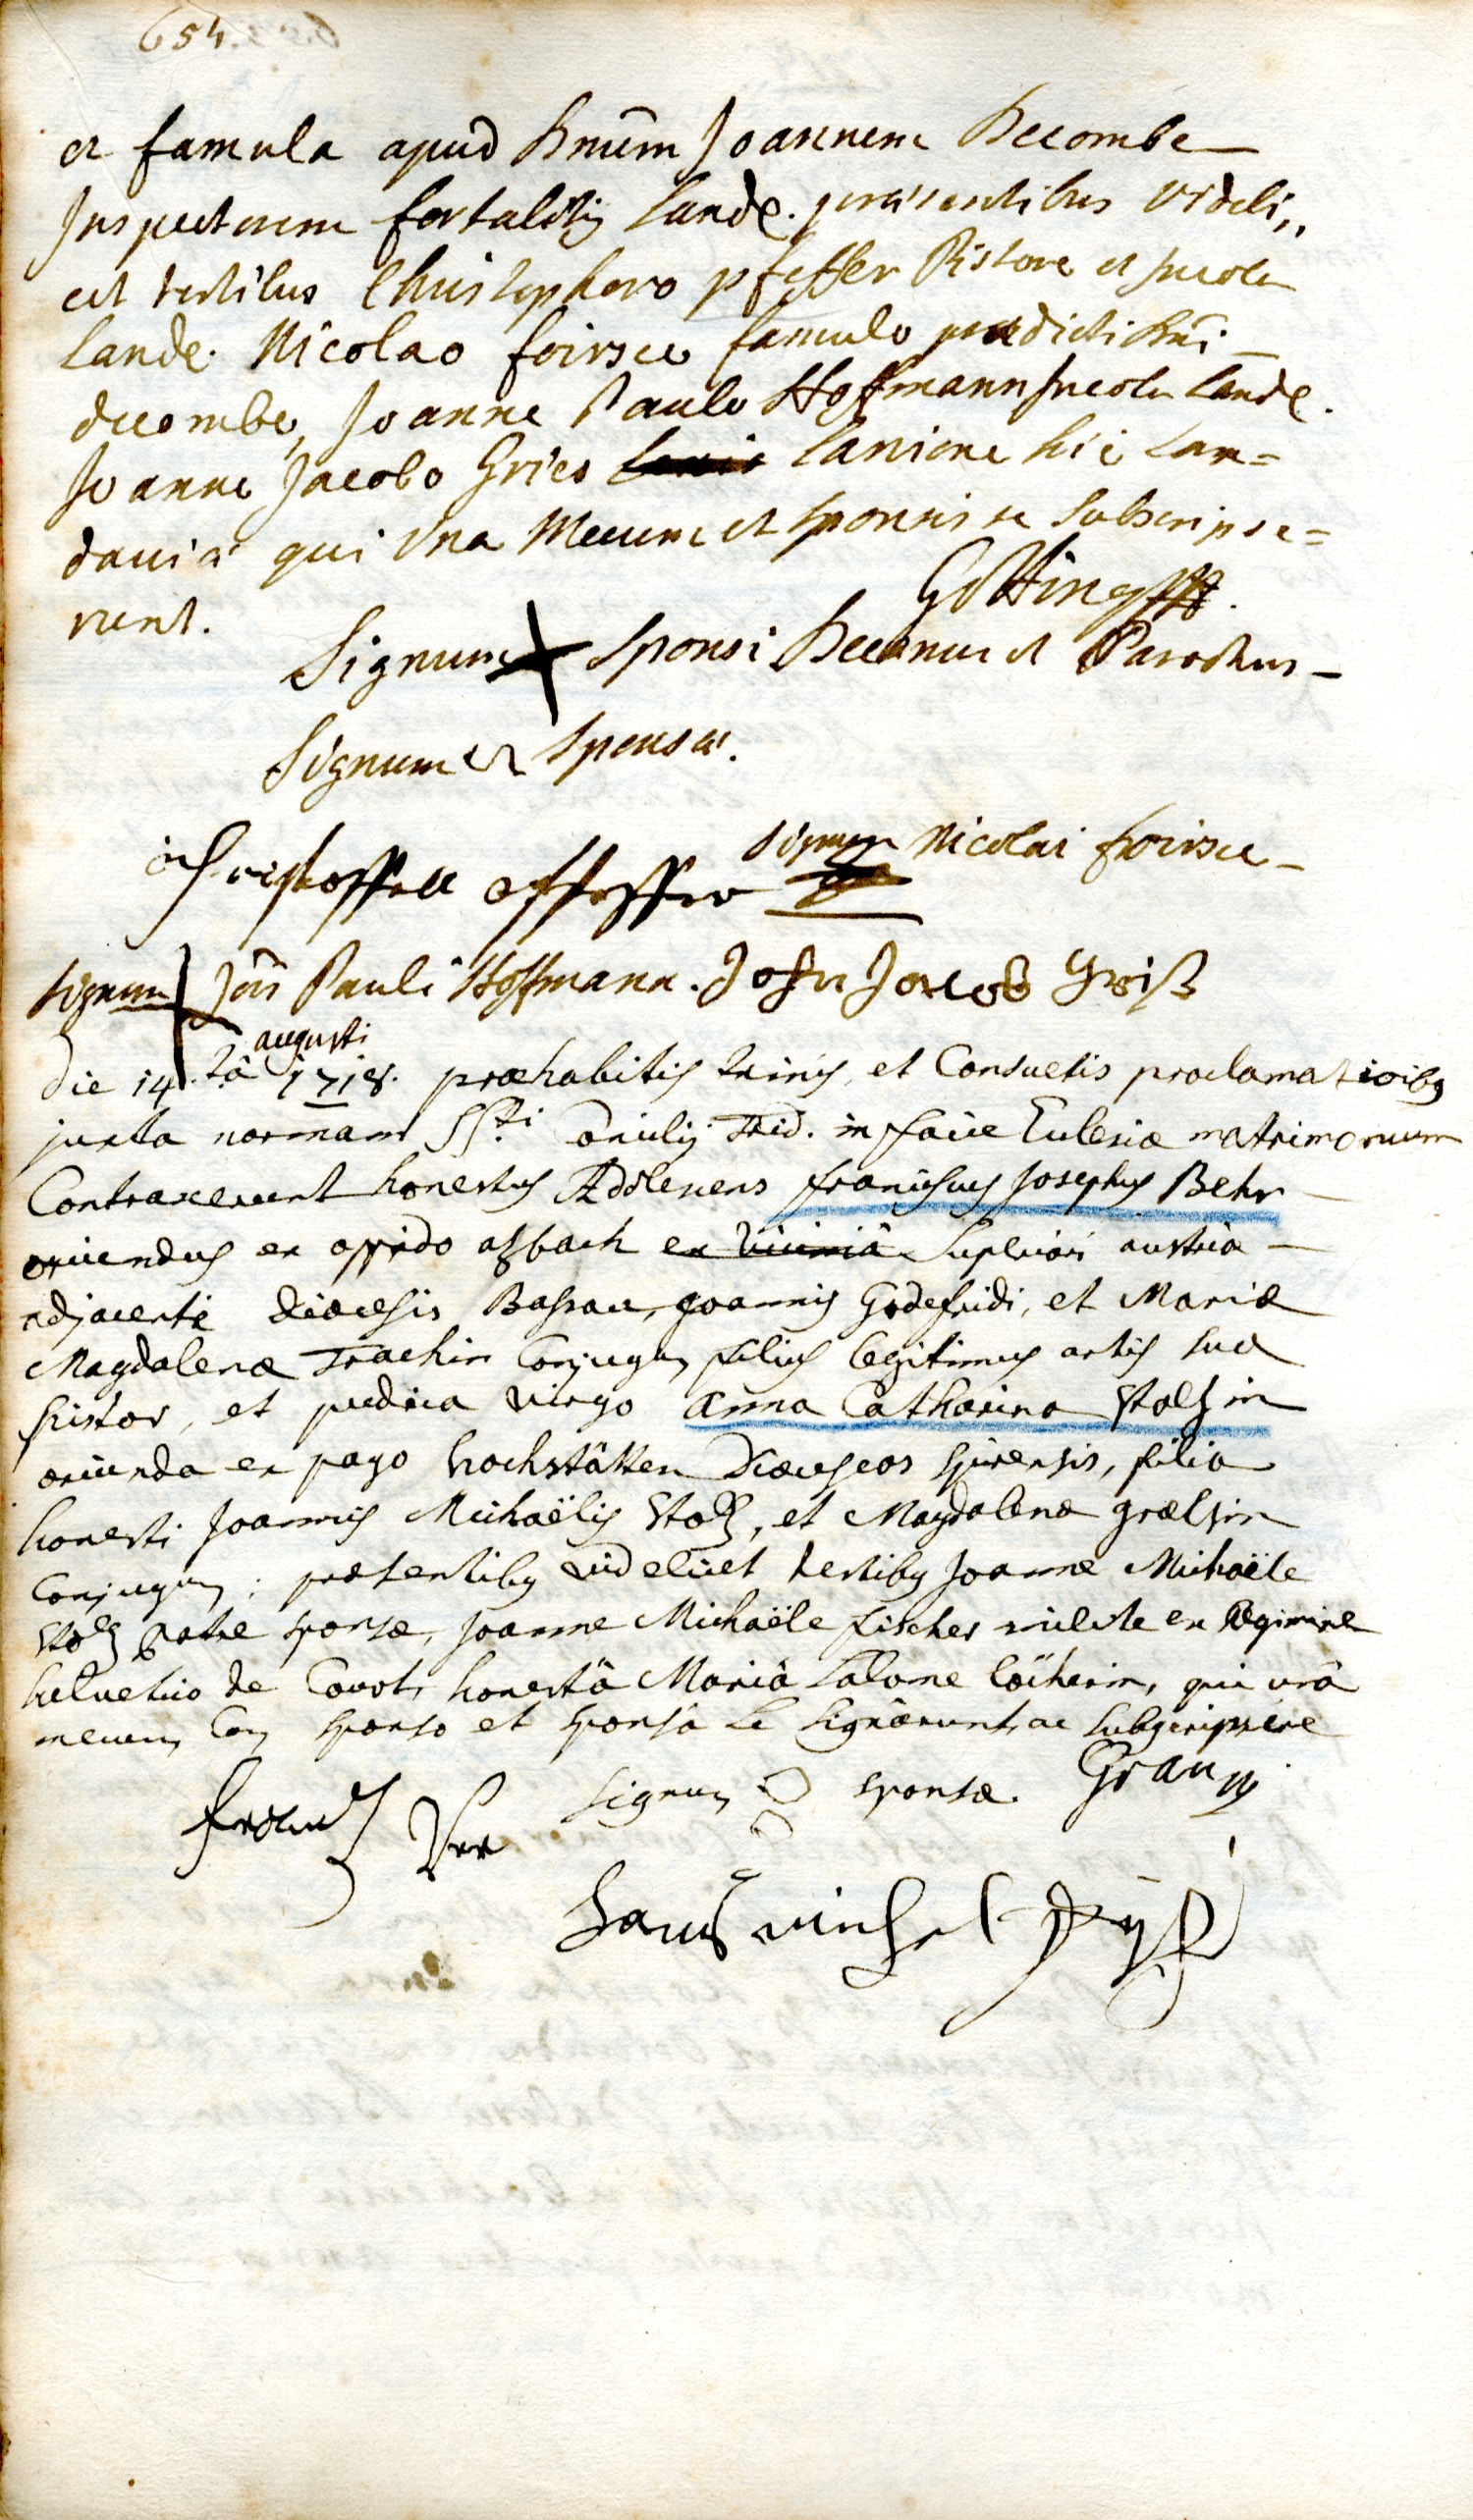 654.
et famula apud Dnum Joannem Decombe
Inspectorem fortalitij Landa. praesentibus videli,,
cet testibus Christophoro pfeffer Pistore et incola
Landa. Nicolao foirsee famulo praedicti Dni
decombe, Joanne Paulo Hoffmann Incola Landa.
Joanne Jacobo Gries Lanione hic Lan=
daviae qui una Mecum et sponsis se subscripse=
runt.
Götting
Signum + Sponsi Decanus et Parochus
Signum sponsae.
Signum Nicolai foirsee
christoffell pfeffer
Signum Jois Pauli Hoffmann. Johan Jacob Griß
augusti
Die 14.tâ 1718. praehabitis trinis, et Consuetis proclamatioibg
juxta normam SSti Conilij Trid. in facie Eclesiae matrimonium
Contraxerunt honestus Adolescens franciscus Josephus Behr
oriundus ex oppido azbach ex viciniâ superiori austriâ
adjacenti dioecesis Bassau, Joannis Godefridi, et Mariae
Magdalenae Trachin Conjugum filius legitimus artis suae
pistor, et pudica virgo Anna Catharina Stolzin
oriunda ex pago hochstätten Dioeceseos spirensis, filia
honesti Joannis Michaëlis Stolz, et Magdalenae graelsin
Conjugum; praesentibg videlicet testibg Joanne Michaële
Stolz patre sponsae, Joanne Michaële fischer milite ex Regimine
helvetico de Courten honestâ Mariâ Salome
qui unâ
mecum Cum sponso et sponsâ se signârunt, ac subscripsere
Signum sponsae. Graun
frantz
hans michel